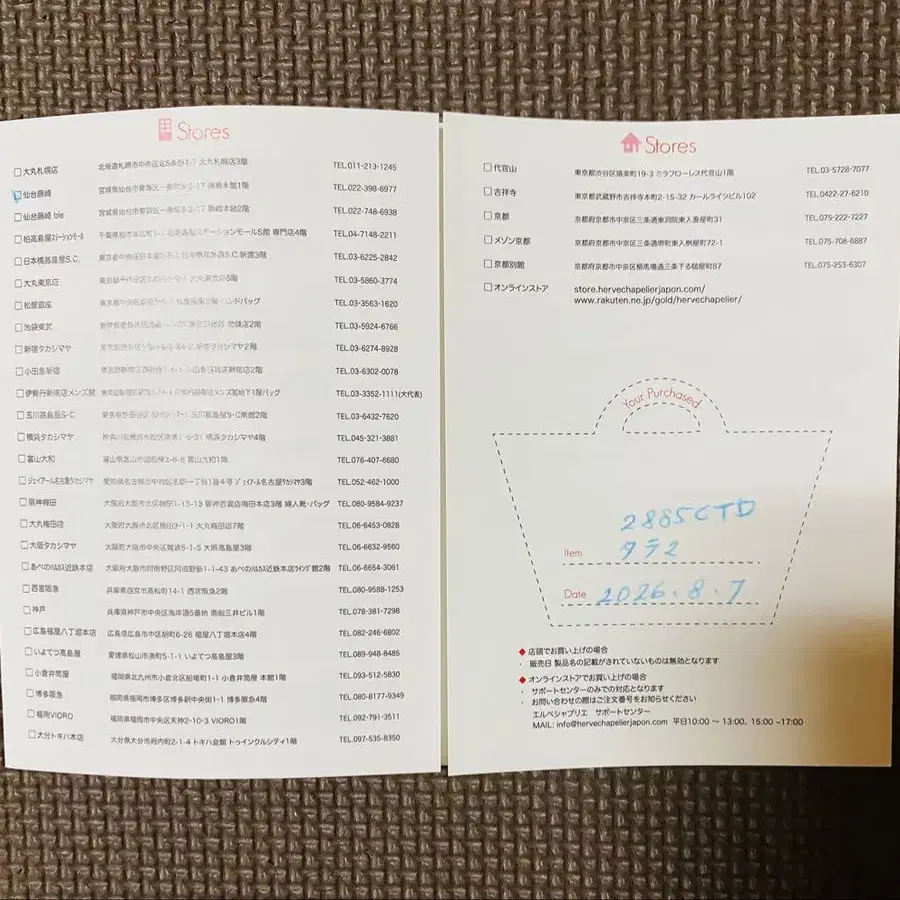 Stores
大丸札幌店 北海道札幌市中央区北5条西4-7 大丸札幌店3階 TEL.011-213-1245
仙台藤崎 宮城県仙台市青葉区一番町3-2-17 藤崎本館1階 TEL.022-398-6977
仙台藤崎 bis 宮城県仙台市青葉区一番町3-2-17 藤崎本館2階 TEL.022-748-6938
柏高島屋ステーションモール 千葉県柏市末広町1-1 ステーションモールS館 専門店4階 TEL.04-7148-2211
日本橋高島屋S.C. 東京都中央区日本橋 S.C.新館3階 TEL.03-6225-2842
大丸東京店 東京都千代田区丸の内1-9-1 大丸東京店 TEL.03-5860-3774
松屋銀座 東京都中央区銀座 ハンドバッグ TEL.03-3563-1620
池袋東武 東京都豊島区西池袋 池袋店2階 TEL.03-5924-6766
新宿タカシマヤ 東京都渋谷区千駄ヶ谷5-24-2 新宿タカシマヤ2階 TEL.03-6274-8928
小田急新宿 東京都新宿区西新宿 新宿店2階 TEL.03-6302-0078
伊勢丹新宿店メンズ館 東京都新宿区新宿 メンズ館地下1階バッグ TEL.03-3352-1111(大代表)
玉川高島屋S・C 東京都世田谷区玉川 玉川高島屋S・C南館2階 TEL.03-6432-7620
横浜タカシマヤ 神奈川県横浜市西区南幸1-6-31 横浜タカシマヤ4階 TEL.045-321-3881
富山大和 富山県富山市総曲輪3-8-6 富山大和1階 TEL.076-407-6680
ジェイアール名古屋タカシマヤ 愛知県名古屋市中村区名駅一丁目1番4号 ジェイアール名古屋タカシマヤ3階 TEL.052-462-1000
阪神梅田 大阪府大阪市北区梅田1-13-13 阪神百貨店梅田本店3階 婦人靴・バッグ TEL.080-9584-9237
大丸梅田店 大阪府大阪市北区梅田3-1-1 大丸梅田店7階 TEL.06-6453-0828
大阪タカシマヤ 大阪府大阪市中央区難波5-1-5 大阪高島屋3階 TEL.06-6632-9560
あべのハルカス近鉄本店 大阪府大阪市阿倍野区阿倍野筋1-1-43 あべのハルカス近鉄本店ウイング館2階 TEL.06-6654-3061
西宮阪急 兵庫県西宮市高松町14-1 西宮阪急2階 TEL.080-9588-1253
神戸 兵庫県神戸市中央区海岸通5番地 商船三井ビル1階 TEL.078-381-7298
広島福屋八丁堀本店 広島県広島市中区胡町6-26 福屋八丁堀本店4階 TEL.082-246-6802
いよてつ高島屋 愛媛県松山市湊町5-1-1 いよてつ高島屋3階 TEL.089-948-8485
小倉井筒屋 福岡県北九州市小倉北区船場町1-1 小倉井筒屋 本館1階 TEL.093-512-5830
博多阪急 福岡県福岡市博多区博多駅中央街1-1 博多阪急4階 TEL.080-8177-9349
福岡VIORO 福岡県福岡市中央区天神2-10-3 VIORO1階 TEL.092-791-3511
大分トキハ本店 大分県大分市府内町2-1-4 トキハ会館 トゥインクルシティ1階 TEL.097-535-8350
Stores
代官山 東京都渋谷区猿楽町19-3 ミラフローレス代官山1階 TEL.03-5728-7077
吉祥寺 東京都武蔵野市吉祥寺本町2-15-32 カールライツビル102 TEL.0422-27-6210
京都 京都府京都市中京区三条通東洞院東入菱屋町31 TEL.075-222-7227
メゾン京都 京都府京都市中京区三条通堺町東入桝屋町72-1 TEL.075-708-6887
京都別館 京都府京都市中京区柳馬場通三条下る槌屋町87 TEL.075-253-6307
オンラインストア store.hervechapelierjapon.com/
www.rakuten.ne.jp/gold/hervechapelier/
Your Purchased
2885CTD
Item タラ2
Date 2026.8.7
◆ 店頭でお買い上げの場合
・ 販売日 製品名の記載がされていないものは無効となります
◆ オンラインストアでお買い上げの場合
・ サポートセンターのみでの対応となります
・ お問い合わせの際はご注文番号をお知らせください
エルベシャプリエ サポートセンター
MAIL: info@hervechapelierjapon.com 平日10:00 ~ 13:00, 15:00 ~17:00